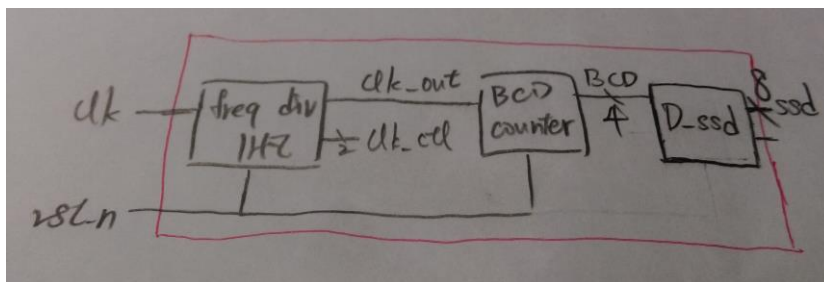 clk
freq div
1HZ
clk_out
2
clk_ctl
BCD
counter
BCD
4
D_ssd
8
ssd
rst_n